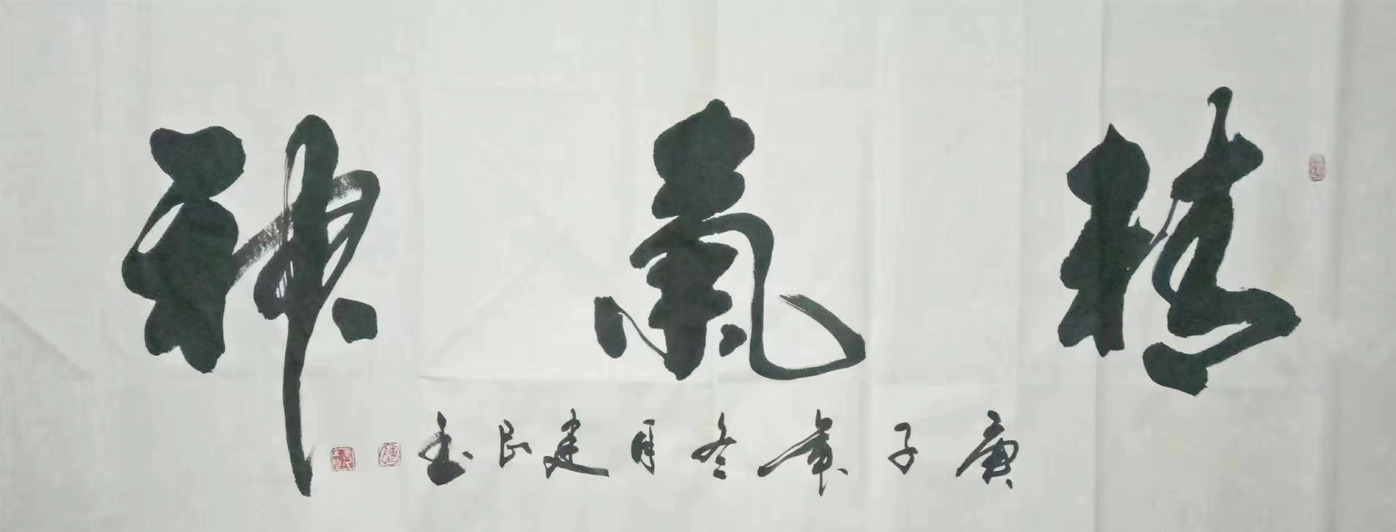 精氣神
庚子年冬月建民書